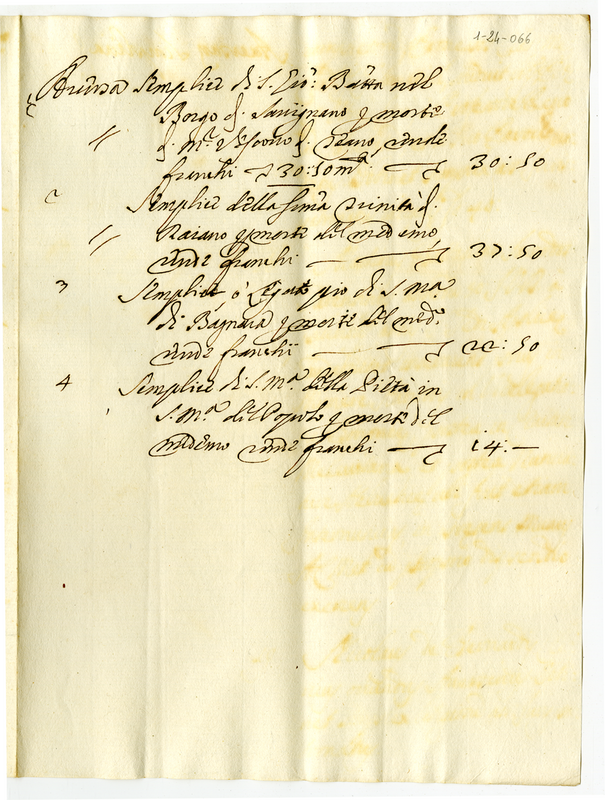 1-24-066
Semplice di S. Gio: Batta nel
Borgo di Savignano per morte
di Mr. Vescovo di rende
franchi 30:50 mta. 30:50
2 Semplice della Sma Trinità di
Raiano per morte del medemo,
rende franchi 37:50
3 Semplice, ò Legato pio di S. Ma
di Bagnara per morte del med.o
rende franchi 22:50
4 Semplice di S. Ma. della Pietà in
S. Ma. del Popolo per morte del
medemo rende franchi 14:—